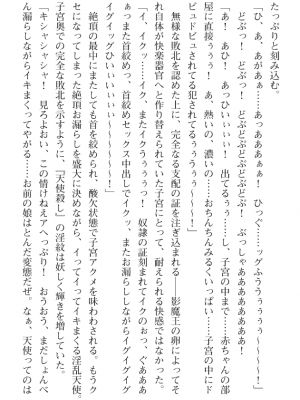 たっぷりと刻み込む。
「ひ、あ、あがぁぁ―――あっああああぁぁ！　ひっぐ――ッッグふううぅぅうぅ～～～～！」
どぶっ！　どぶっ！　どぶどぶどぶどぶっ！　ぶっしゃああああああああ！
「あ！　あひ！　あっひぃぃぃ！　出てるぅぅ――し、子宮の中まで――赤ちゃんの部
屋に直接ぅぅぅ！　あ、熱いの、濃いの――おちんちんみるくいっぱい――子宮の中にド
ビュドビュされてる犯されてるぅぅぅ～～～！」
無様な敗北を認めた上に、完全なる支配の証を注ぎ込まれる――影魔王の卵によってそ
れ自体が快楽器官へと作り替えられていた子宮にとって、耐えられる快感ではなかった。
「イ、イクッ――イク、またイクうぅっっ！　奴隷の証刻まれてイクのぉっ、ぐああああ
ぁっまた首絞めっ、首絞めセックス中出しでイクッ、またお漏らししながらイグイグイグ
イグイッッグひいいいぃぃぃ～～～～！」
絶頂の最中にまたしても首を絞められ、酸欠状態で子宮アクメを味わわされる。もうク
セになってしまった絶頂お漏らしを盛大に決めながら、イってイってイキまくる淫乱天使。
子宮奥での完全な敗北を示すように、「天使殺し」の淫紋は妖しく輝きを増していた。
「キシャシャシャ！　見ろよおい、この情けねえアヘっぷり！　おうおう、まだしょんべ
ん漏らしながらイキまくってやがる――お前の娘はとんだ変態だぜ。なぁ、天使ってのは